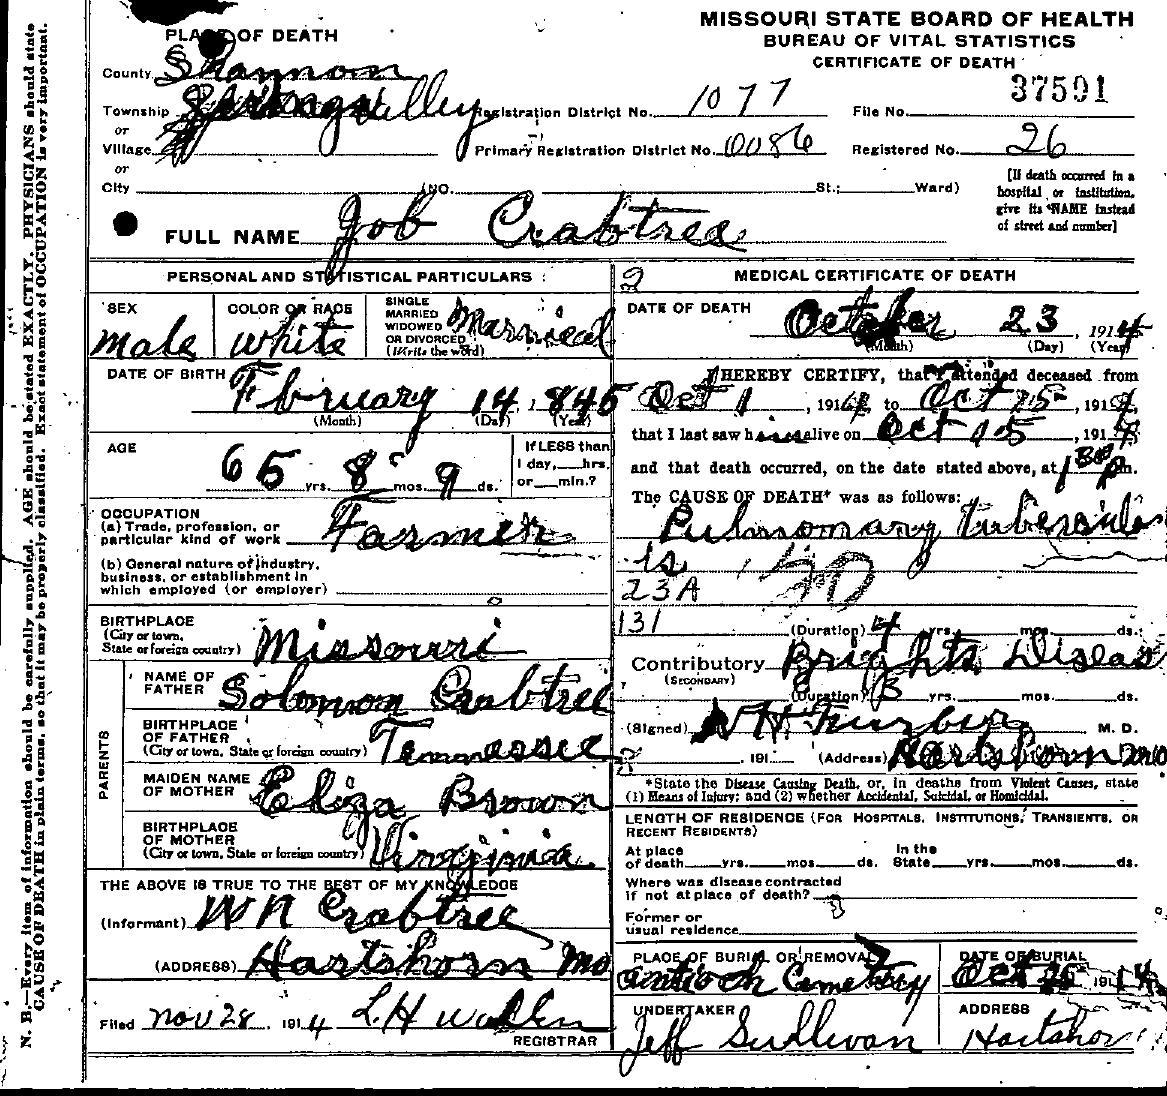 MISSOURI STATE BOARD OF HEALTH
BUREAU OF VITAL STATISTICS
CERTIFICATE OF DEATH
PLACE OF DEATH
County Shannon
Township Spring Valley Registration District No. 1077 File No. 37591
or
Village Primary Registration District No. 0086 Registered No. 26
or
City (NO. St.; Ward)
[If death occurred in a
hospital or institution,
give its NAME instead
of street and number]
FULL NAME Job Crabtree
PERSONAL AND STATISTICAL PARTICULARS
SEX male
COLOR OR RACE white
SINGLE
MARRIED
WIDOWED
OR DIVORCED
(Write the word) Married
DATE OF BIRTH Fbruary 14, 1845
(Month) (Day) (Year)
AGE 65 yrs. 8 mos. 9 ds.
If LESS than
1 day, hrs.
or min.?
OCCUPATION
(a) Trade, profession, or
particular kind of work Farmer
(b) General nature of industry,
business, or establishment in
which employed (or employer)
BIRTHPLACE
(City or town,
State or foreign country) Missouri
PARENTS
NAME OF
FATHER Solomon Crabtree
BIRTHPLACE
OF FATHER
(City or town, State or foreign country) Tennessee
MAIDEN NAME
OF MOTHER Eliza Brown
BIRTHPLACE
OF MOTHER
(City or town, State or foreign country) Virginia
THE ABOVE IS TRUE TO THE BEST OF MY KNOWLEDGE
(Informant) W N Crabtree
(ADDRESS) Hartshorn Mo
Filed nov 28, 1914 L. H
REGISTRAR
2
MEDICAL CERTIFICATE OF DEATH
DATE OF DEATH October 23 1914
(Month) (Day) (Year)
I HEREBY CERTIFY, that I attended deceased from
Oct 1, 1914, to Oct 15, 191
that I last saw him alive on Oct 15, 191
and that death occurred, on the date stated above, at 1 30 pm.
The CAUSE OF DEATH* was as follows:
Pulmonary tuberculos
is
23A
131
(Duration) 4 yrs. mos. ds.
Contributory Brights Diseas
(SECONDARY)
(Duration) 3 yrs. mos. ds.
(Signed) M. D.
, 191 (Address) Hartshorn mo
*State the Disease Causing Death, or, in deaths from Violent Causes, state
(1) Means of Injury; and (2) whether Accidental, Suicidal, or Homicidal.
LENGTH OF RESIDENCE (FOR HOSPITALS, INSTITUTIONS, TRANSIENTS, OR
RECENT RESIDENTS)
At place
of death yrs. mos. ds.
In the
State yrs. mos. ds.
Where was disease contracted
if not at place of death?
Former or
usual residence
PLACE OF BURIAL OR REMOVAL
antioch Cemetery
DATE OF BURIAL
Oct 1914
UNDERTAKER
Jeff Sullivan
ADDRESS
Hartshor
N. B.—Every item of information should be carefully supplied. AGE should be stated EXACTLY. PHYSICIANS should state
CAUSE OF DEATH in plain terms, so that it may be properly classified. Exact statement of OCCUPATION is very important.